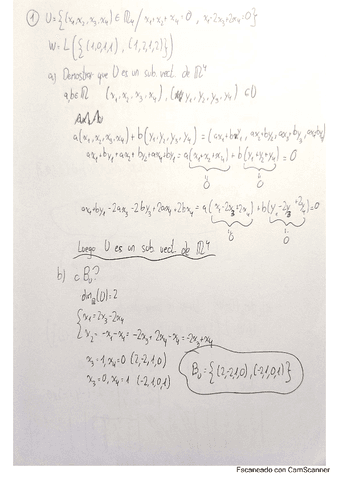 ① U={(x₁,x₂,x₃,x₄)∈ℝ₄/x₁+x₂+x₄=0, x₁-2x₃+2x₄=0}
W=L({(1,0,1,1), (1,2,1,2)})
a) Demostrar que U es un sub. vect. de ℝ⁴
a,b∈ℝ (x₁,x₂,x₃,x₄), (y₁,y₂,y₃,y₄) ⊂U
a(x₁,x₂,x₃,x₄)+b(y₁,y₂,y₃,y₄)=(ax₁+by₁, ax₂+by₂,ax₃+by₃,ax₄+by₄)
ax₁+by₁+ax₂+by₂+ax₄+by₄=a(x₁+x₂+x₄)+b(y₁+y₂+y₄)=0
0 0
ax₁+by₁-2ax₃-2by₃+2ax₄+2bx₄=a(x₁-2x₃+2x₄)+b(y₁-2y₃+2y₄)=0
0 0
Luego U es un sub. vect. de ℝ⁴
b) c Bᵤ?
dim_ℝ(U)=2
{x₁=2x₃-2x₄
x₂=-x₁-x₄=-2x₃+2x₄-x₄=-2x₃+x₄
x₃=1,x₄=0 (2,-2,1,0)
x₃=0, x₄=1 (-2,1,0,1)
Bᵤ={(2,-2,1,0),(-2,1,0,1)}
Escaneado con CamScanner